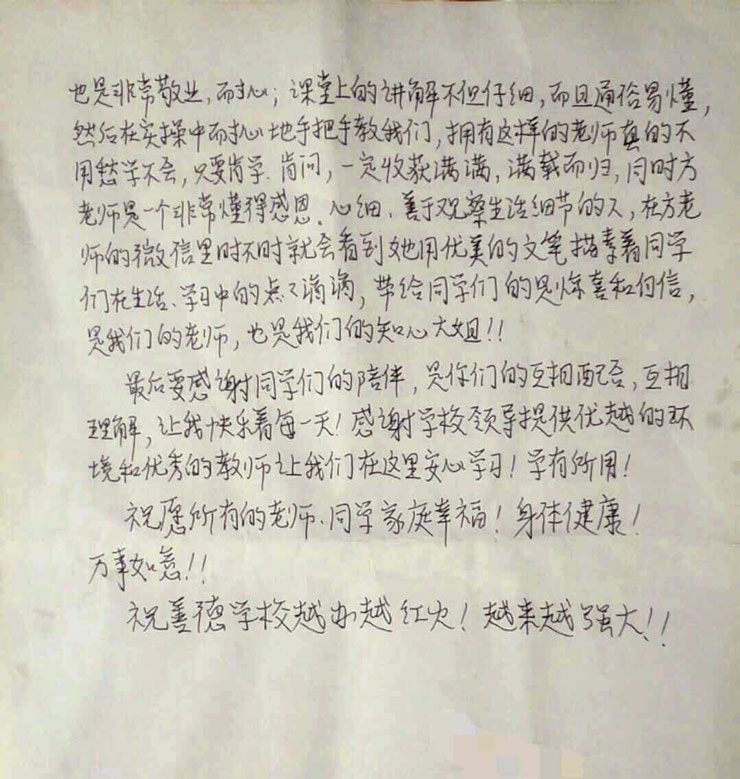 也是非常敬业,而耐心;课堂上的讲解不但仔细,而且通俗易懂,
然后在实操中耐心地手把手教我们,拥有这样的老师真的不
用愁学不会,只要肯学、肯问,一定收获满满,满载而归,同时方
老师是一个非常懂得感恩、心细、善于观察生活细节的人,在方老
师的微信里时不时就会看到她用优美的文笔描素着同学
们在生活、学习中的点点滴滴,带给同学们的是惊喜和自信,
是我们的老师,也是我们的知心大姐!!
最后要感谢同学们的陪伴,是你们的互相配合,互相
理解,让我快乐着每一天!感谢学校领导提供优越的环
境和优秀的教师让我们在这里安心学习!学有所用!
祝愿所有的老师、同学家庭幸福!身体健康!
万事如意!!
祝善德学校越办越红火!越来越强大!!